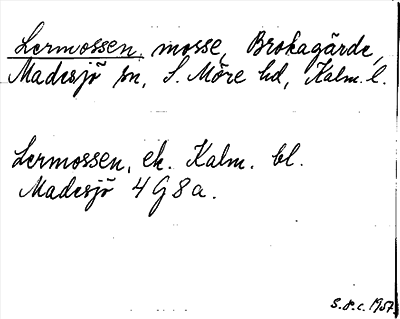 Lermossen, mosse, Brokagärde,
Madesjö sn, S. Möre hd, Kalm. l.
Lermossen, ek. Kalm. bl.
Madesjö 4 G 8 a.
S.P.C. 1957.